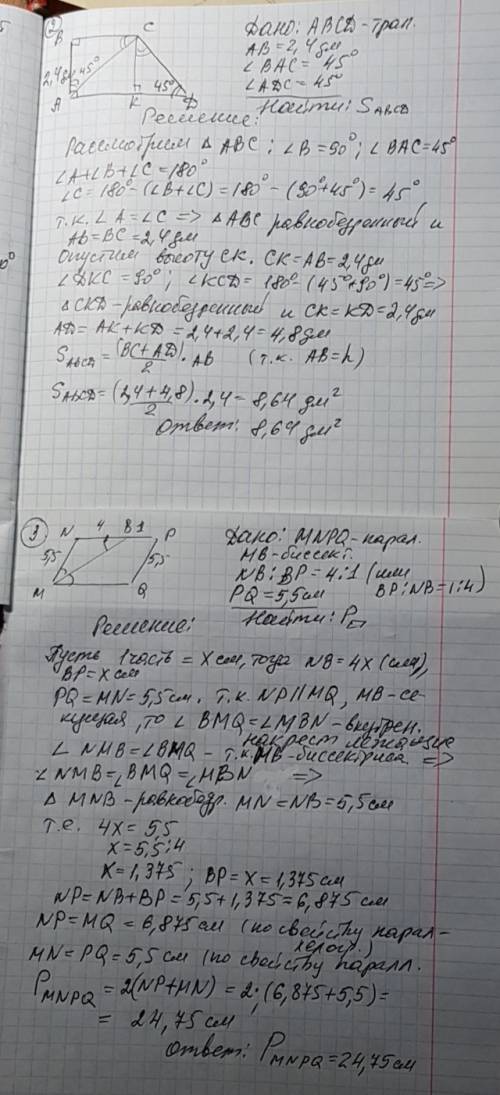 2
B C
2,4дм 45°
A K 45° D
Дано: ABCD-трап.
AB=2,4дм
∠BAC = 45°
∠ADC = 45°
Найти: S ABCD
Решение:
Рассмотрим △ ABC; ∠B=90°; ∠BAC=45°
∠A+∠B+∠C=180°
∠C=180°-(∠B+∠C)=180°-(90°+45°)=45°
т.к. ∠A=∠C => △ABC равнобедренный и
AB=BC=2,4дм
Опустим высоту CK. CK=AB=2,4дм
∠DKC=90°; ∠KCD= 180°-(45°+90°)=45°=>
△CKD-равнобедренный и CK=KD=2,4дм
AD=AK+KD=2,4+2,4=4,8дм
S ABCD = (BC+AD)/2 · AB (т.к. AB=h)
S ABCD = (2,4+4,8)/2 · 2,4= 8,64 дм²
Ответ: 8,64 дм²
3
N 4 B 1 P
5,5 5,5
M Q
Дано: MNPQ-парал.
MB-биссект.
NB:BP=4:1 (или
PQ=5,5см BP:NB=1:4)
Найти: P▱
Решение:
Пусть 1часть = X см, тогда NB=4X (см),
BP=X см
PQ=MN=5,5см. т.к. NP||MQ, MB-се-
кущая, то ∠ BMQ=∠MBN-внутрен.
накрест лежащие
∠ NMB=∠BMQ - т.к. MB-биссектриса =>
∠NMB=∠BMQ=∠MBN =>
△ MNB-равнобедр. MN=NB=5,5см
т.е. 4X=5,5
X=5,5:4
X=1,375; BP=X=1,375см
NP=NB+BP=5,5+1,375=6,875см
NP=MQ=6,875см (по свойству парал-
лелогр.)
MN=PQ=5,5см (по свойству паралл.
P MNPQ = 2(NP+MN) = 2·(6,875+5,5)=
= 24,75см
Ответ: P MNPQ=24,75см